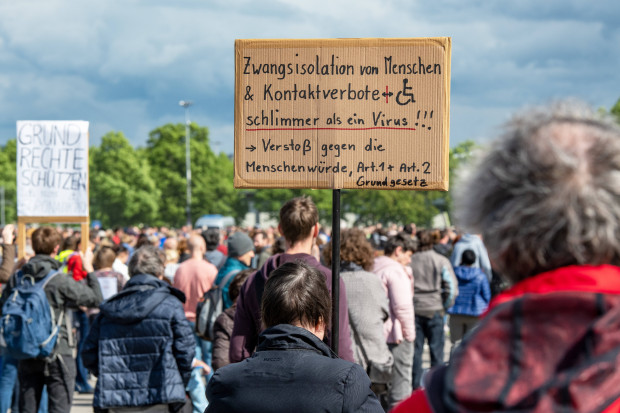 GRUND
RECHTE
SCHÜTZEN
Zwangsisolation von Menschen
& Kontaktverbote + ♿
schlimmer als ein Virus !!!
→ Verstoß gegen die
Menschenwürde, Art.1 + Art. 2
Grundgesetz